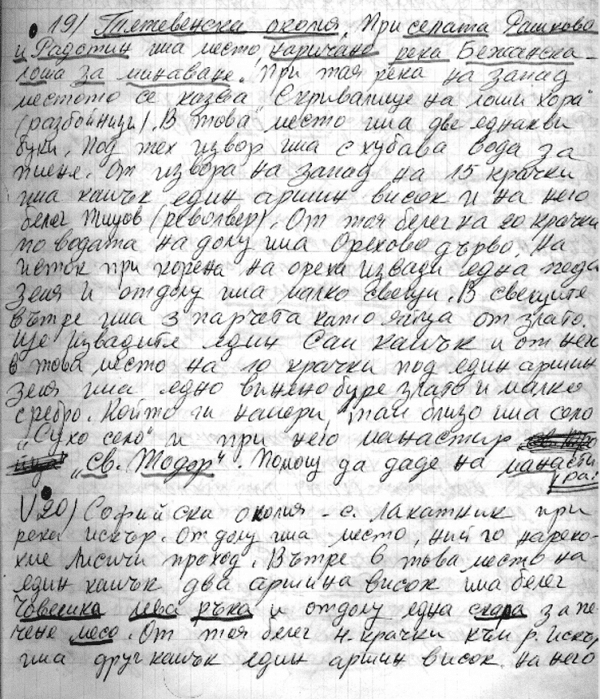 19) Тетевенска околия. При селата Рашково
и Радотин има место, наричано река Бежанска-
лоша за минаване. При тая река на запад
местото се казва "Скривалище на лоши хора"
(разбойници). В това место има две еднакви
буки. Под тех извор има с хубава вода за
пиене. От извора на запад на 15 крачки
има камък един аршин висок и на него
белег Пищов (револвер). От тоя белег на 20 крачки
по водата на долу има Орехово дърво. На
исток при корена на ореха извади една педа
земя и отдолу има малко свещи. В свещите
вътре има 3 парчета като яйца от злато.
Ще извадите един Саи камък и от нея
в това место на 10 крачки под един аршин
земя има едно винено буре злато и малко
сребро. Който ги намери, там близо има село
"Сухо село" и при него манасти́р
"Св. Тодор". Помощ да даде на манасти
ра!
V 20) Софийска околия - с. Лакатник при
река Искър. Отдолу има место, ний го нареко-
хме Лисичи проход. Вътре в това место на
един камък два аршина висок има белег
човешка лева ръка и отдолу една скара за пе-
чене месо. От тоя белег 4 крачки към р. Искър
има друг камък един аршин висок на него